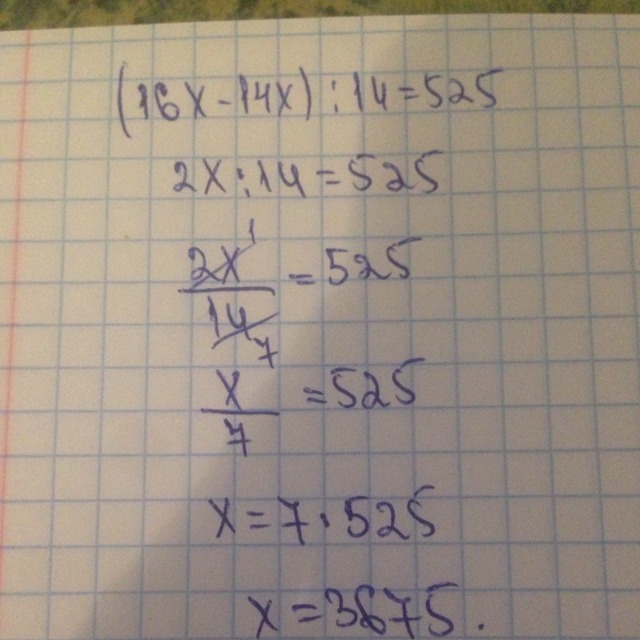 (16x-14x):14=525
2x:14=525
2x 1
— =525
14 7
x
— =525
7
x=7·525
x=3675.